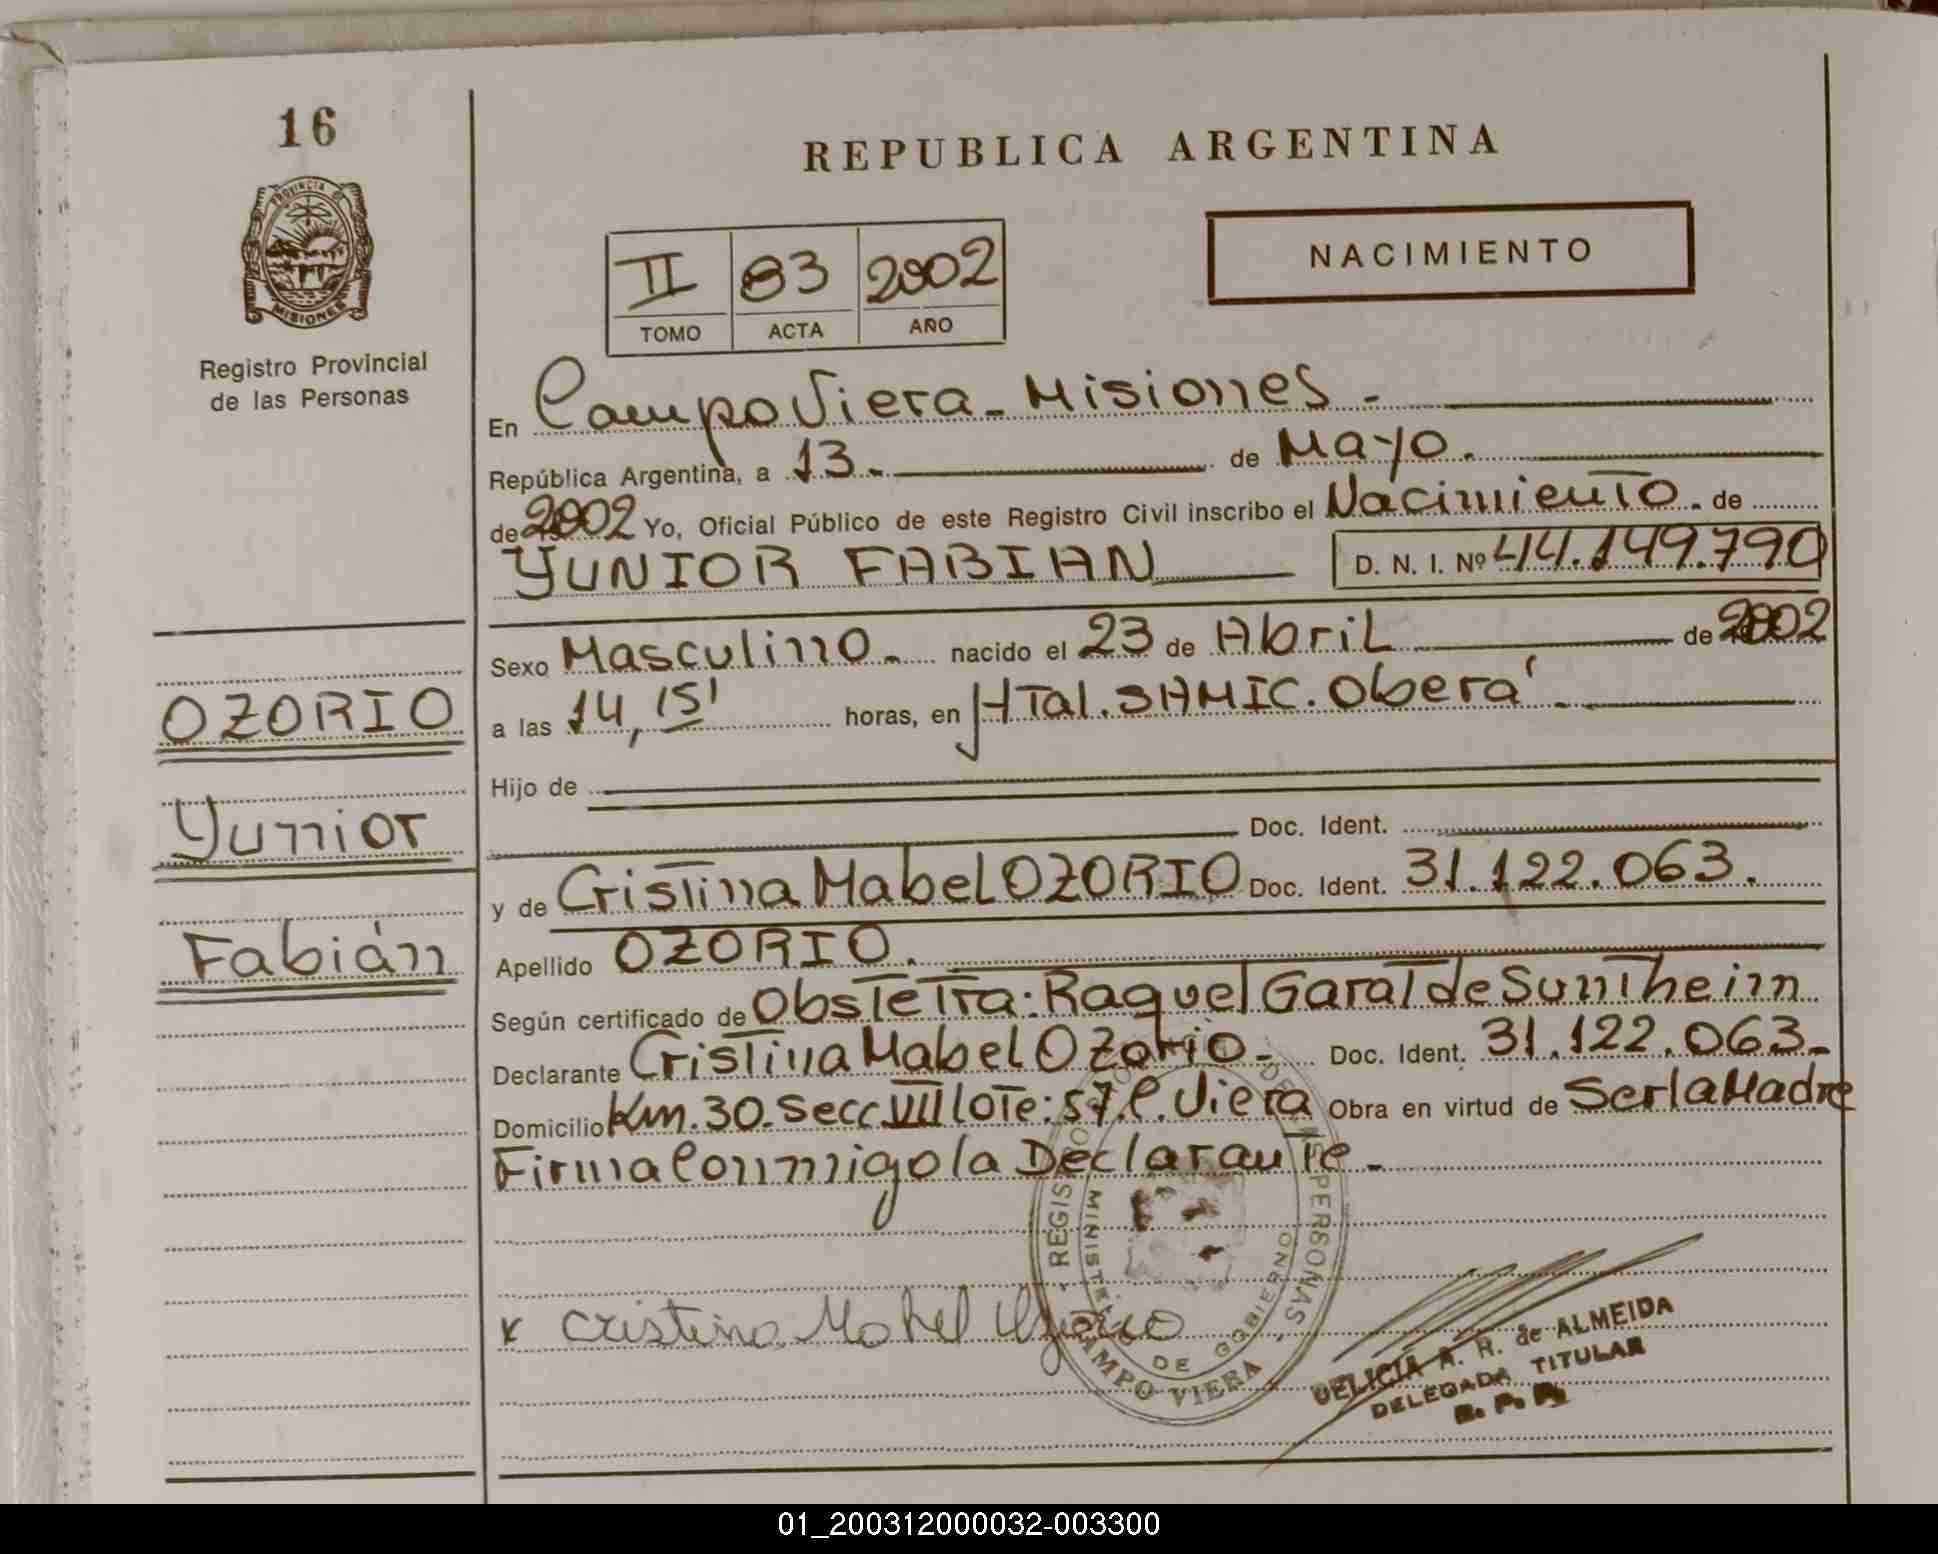 16
PROVINCIA
MISIONES
Registro Provincial
de las Personas
REPUBLICA ARGENTINA
NACIMIENTO
II 83 2002
TOMO ACTA AÑO
En Campo Viera - Misiones -
República Argentina, a 13 - de Mayo.
de 2002 Yo, Oficial Público de este Registro Civil inscribo el Nacimiento. de
YUNIOR FABIAN D. N. I. Nº 44.149.790
Sexo Masculino - nacido el 23 de Abril de 2002
a las 14,15' horas, en HTal. SAMIC. Oberá -
Hijo de
Doc. Ident.
y de Cristina Mabel OZORIO Doc. Ident. 31.122.063.
Apellido OZORIO.
Según certificado de Obstetra: Raquel Garat de Suntheim
Declarante Cristina Mabel Ozorio - Doc. Ident. 31.122.063 -
Domicilio Km. 30. Secc. VII lote: 57. C. Viera Obra en virtud de Ser la Madre
Firma Conmigo la Declarante -
OZORIO
Yunior
Fabián
x Cristina Mabel Ozorio
REGISTRO DE PERSONAS
MINISTERIO DE GOBIERNO
CAMPO VIERA
DELICIA A. R. de ALMEIDA
DELEGADA TITULAR
R. P. P.
01_200312000032-003300